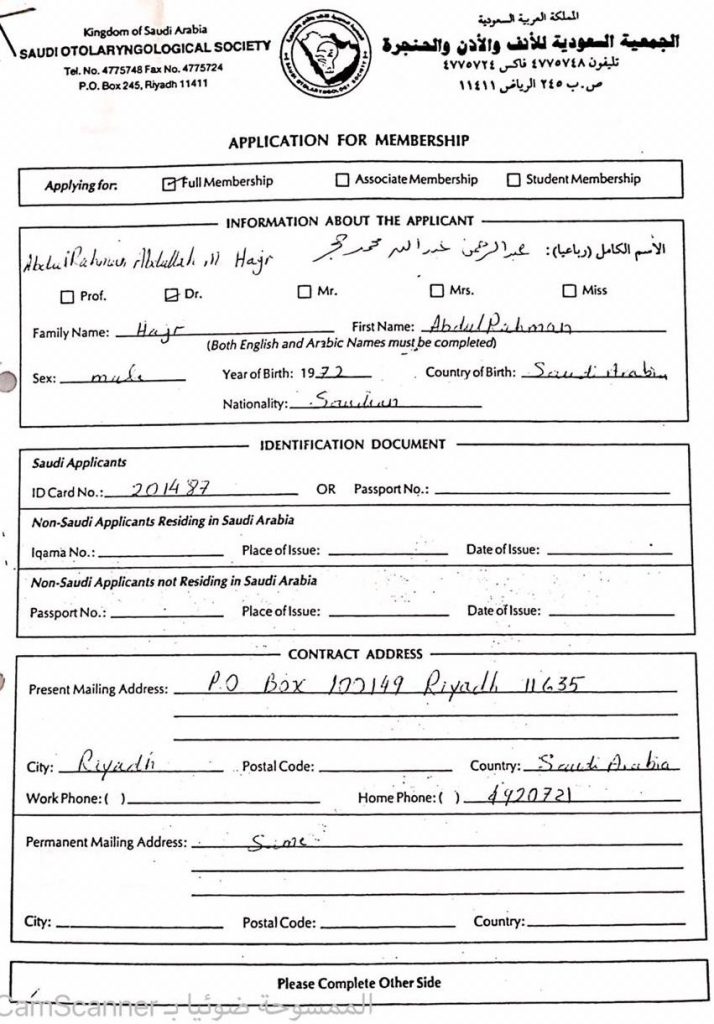 Kingdom of Saudi Arabia
SAUDI OTOLARYNGOLOGICAL SOCIETY
Tel. No. 4775748 Fax No. 4775724
P.O. Box 245, Riyadh 11411
المملكة العربية السعودية
الجمعية السعودية للأنف والأذن والحنجرة
تليفون ٤٧٧٥٧٤٨ فاكس ٤٧٧٥٧٢٤
ص.ب ٢٤٥ الرياض ١١٤١١
APPLICATION FOR MEMBERSHIP
Applying for: Full Membership Associate Membership Student Membership
INFORMATION ABOUT THE APPLICANT
AbdulRahman Abdullah Hajr الأسم الكامل (رباعيا): عبدالرحمن عبدالله محمد حجر
Prof. Dr. Mr. Mrs. Miss
Family Name: Hajr First Name: AbdulRahman
(Both English and Arabic Names must be completed)
Sex: male Year of Birth: 1972 Country of Birth: Saudi Arabia
Nationality: Saudian
IDENTIFICATION DOCUMENT
Saudi Applicants
ID Card No.: 201487 OR Passport No.:
Non-Saudi Applicants Residing in Saudi Arabia
Iqama No.: Place of Issue: Date of Issue:
Non-Saudi Applicants not Residing in Saudi Arabia
Passport No.: Place of Issue: Date of Issue:
CONTRACT ADDRESS
Present Mailing Address: P.O Box 100149 Riyadh 11635
City: Riyadh Postal Code: Country: Saudi Arabia
Work Phone: ( ) Home Phone: ( ) 4920721
Permanent Mailing Address: Same
City: Postal Code: Country:
Please Complete Other Side
CamScanner الممسوحة ضوئيا بـ